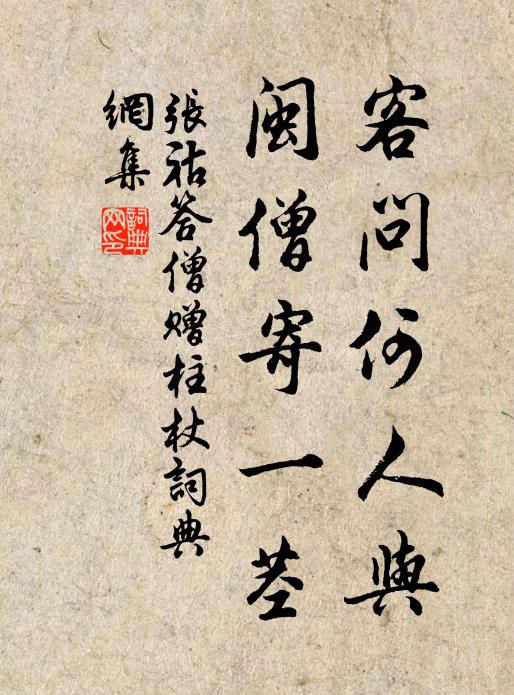 客問何人與
閩僧寄一莖
張祜答僧贈柱杖詞典
網集
詞典網印